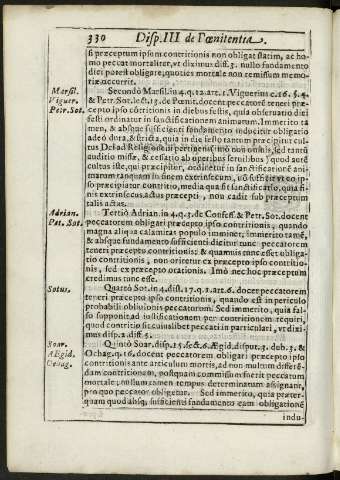 330 Disp. III de Pœnitentia.
si præceptum ipsum contritionis non obligat statim, ac ho-
mo peccat mortaliter, vt diximus dist. 3. nullo fundamento
dici potest obligare, quoties mortale non remissum memo-
riæ occurrit.
Marsil. Viguer. Petr. Sot.
Secundò Marsil. in 4. q. 12. art. 1. Viguerius c. 16. §. 4.
& Petr. Sot. lect. 13. de Pœnit. docent peccatorē teneri præ-
cepto ipso cōtritionis in diebus festis, quia obseruatio diei
festi ordinatur in sanctificationem animarum. Immerito ta
men, & absque sufficienti fundamento inducitur obligatio
adeò dura, & stricta, quia in die festo tantùm præcipitur cul
tus Dei ad Religionem pertinens, imò non omnis, sed tantū
auditio missæ, & cessatio ab operibus seruilibus; quòd autē
cultus iste, qui præcipitur, ordinetur in sanctificationē ani-
marum tanquam in finem extrinsecum, nō sufficit vt eo ip-
so præcipiatur contritio, media qua fit sanctificatio, quia fi-
nis extrinsecus actus præcepti, non cadit sub præceptum
talis actus.
Adrian. Pet. Sot.
Tertiò Adrian. in 4. q. 3. de Confess. & Petr. Sot. docent
peccatorem obligari præcepto ipso contritionis, quando
magna aliqua calamitas populo imminet, immerito tamē,
& absque fundamento sufficienti dicitur tunc peccatorem
teneri præcepto contritionis; & quamuis tunc esset obliga-
tio contritionis, non oriretur ex præcepto ipso contritio-
nis, sed ex præcepto orationis. Imò nec hoc præceptum
credimus tunc esse.
Sotus.
Quartò Sot. in 4. dist. 17. q. 2. art. 6. docet peccatorem
teneri præcepto ipso contritionis, quando est in periculo
probabili obliuionis peccatorum: Sed immerito, quia fal-
so supponit ad iustificationem per contritionem requiri,
quod contritio sit cuiuslibet peccati in particulari, vt dixi-
mus disp. 2. diff. 5.
Soar. Ægid. Ochag.
Quintò Soar. disp. 15. sect. 6. Ægid. disput. 3. dub. 3. &
Ochag. q. 16. docent peccatorem obligari præcepto ipso
contritionis ante articulum mortis, ad non multum differē-
dam contritionem, postquam commissum fuerit peccatum
mortale; nullum tamen tempus determinatum assignant,
pro quo peccator obligetur. Sed immerito, quia præter-
quam quod absq; sufficienti fundamento eam obligationē
indu-